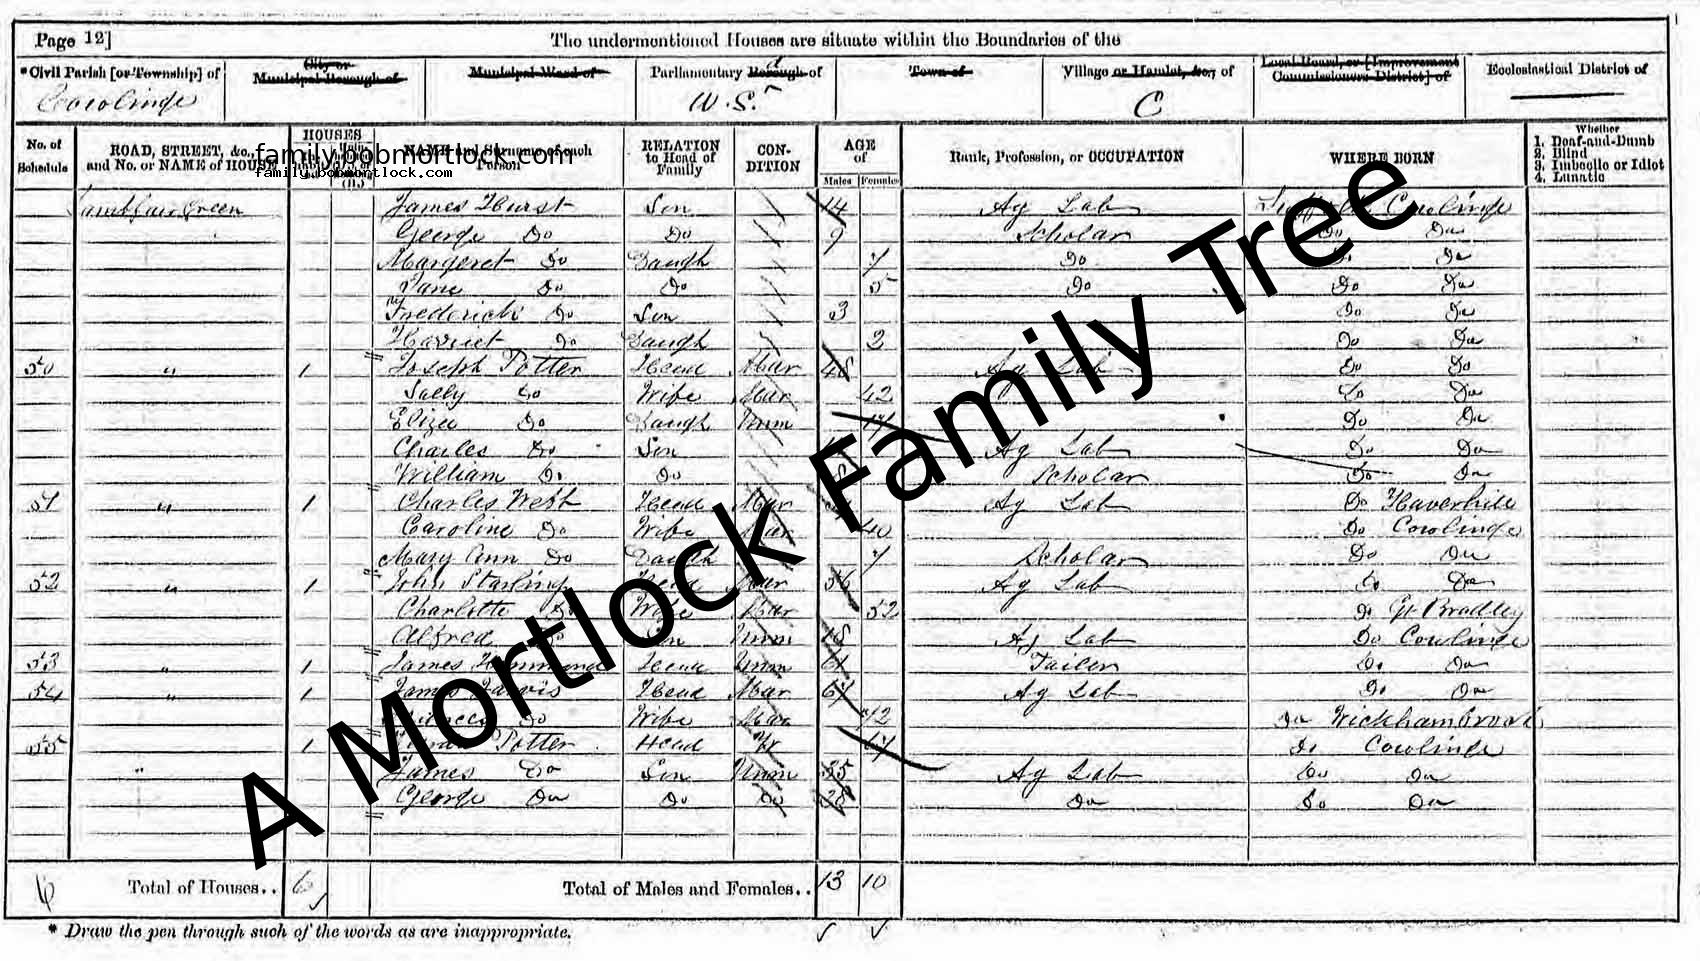 Page 12]
The undermentioned Houses are situate within the Boundaries of the
*Civil Parish [or Township] of
City or Municipal Borough of
Municipal Ward of
Parliamentary Borough of
Town of
Village or Hamlet, &c., of
Local Board, or [Improvement Commissioners District] of
Ecclesiastical District of
Cowlinge
W. S.
C
No. of Schedule
ROAD, STREET, &c., and No. or NAME of HOUSE
HOUSES
NAME and Surname of each Person
RELATION to Head of Family
CONDITION
AGE of
Males
Females
Rank, Profession, or OCCUPATION
WHERE BORN
Whether
1. Deaf-and-Dumb
2. Blind
3. Imbecile or Idiot
4. Lunatic
family.bobmortlock.com
family.bobmortlock.com
Green James Hurst Son 14 Ag Lab Suffolk Cowlinge
George Do Do 9 Scholar Do Do
Margeret Do Daugh 7 Do Do Do
Jane Do Do 5 Do Do Do
Frederick Do Son 3 Do Do
Harriet Do Daugh 2 Do Do
50 " 1 Joseph Potter Head Mar 48 Ag Lab Do Do
Sally Do Wife Mar 42 Do Do
Eliza Do Daugh Unm Do Do
Charles Do Son Ag Lab Do Do
William Do Do Scholar Do Do
51 " 1 Charles Webb Head Mar Ag Lab Do Haverhill
Caroline Do Wife Mar 40 Do Cowlinge
Mary Ann Do Daugh 7 Scholar Do Do
52 " 1 John Starling Head Mar 56 Ag Lab Do Do
Charlotte Do Wife Mar 52 Do Gt Bradley
Alfred Do Son Unm 18 Ag Lab Do Cowlinge
53 " 1 James Hammond Head Unm 61 Tailer Do Do
54 " 1 James Jarvis Head Mar 67 Ag Lab Do Do
Do Wife Mar 72 Do Wickhambrook
55 1 Potter Head 67 Do Cowlinge
" James Do Son Unm 35 Ag Lab Do Do
George Do Do Do 28 Do Do Do
A Mortlock Family Tree
Total of Houses.. 6
Total of Males and Females.. 13 10
* Draw the pen through such of the words as are inappropriate.